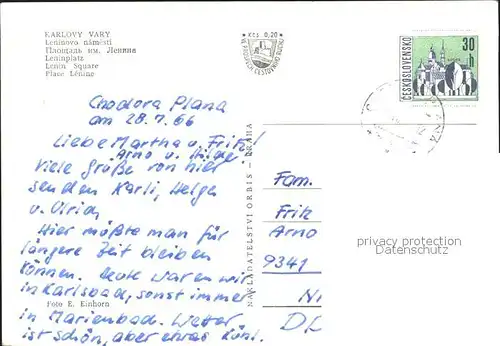 KARLOVY VARY
Leninovo náměstí
Площадь им. Ленина
Leninplatz
Lenin Square
Place Lénine
Kčs 0,20
ČESKOSLOVENSKO
30
h
Chodora Plana
am 28.7.66
Liebe Martha u. Fritz!
Arno u. Hilde!
Viele Grüße von hier
senden Karli, Helga
u. Ulrich
Hier müßte man für
längere Zeit bleiben
können. Heute waren wir
in Karlsbad, sonst immer
in Marienbad. Wetter
ist schön, aber etwas kühl.
Foto E. Einhorn
NAKLADATELSTVÍ ORBIS - PRAHA
Fam.
Fritz
Arno
9341
Ni
DL
privacy protection
Datenschutz